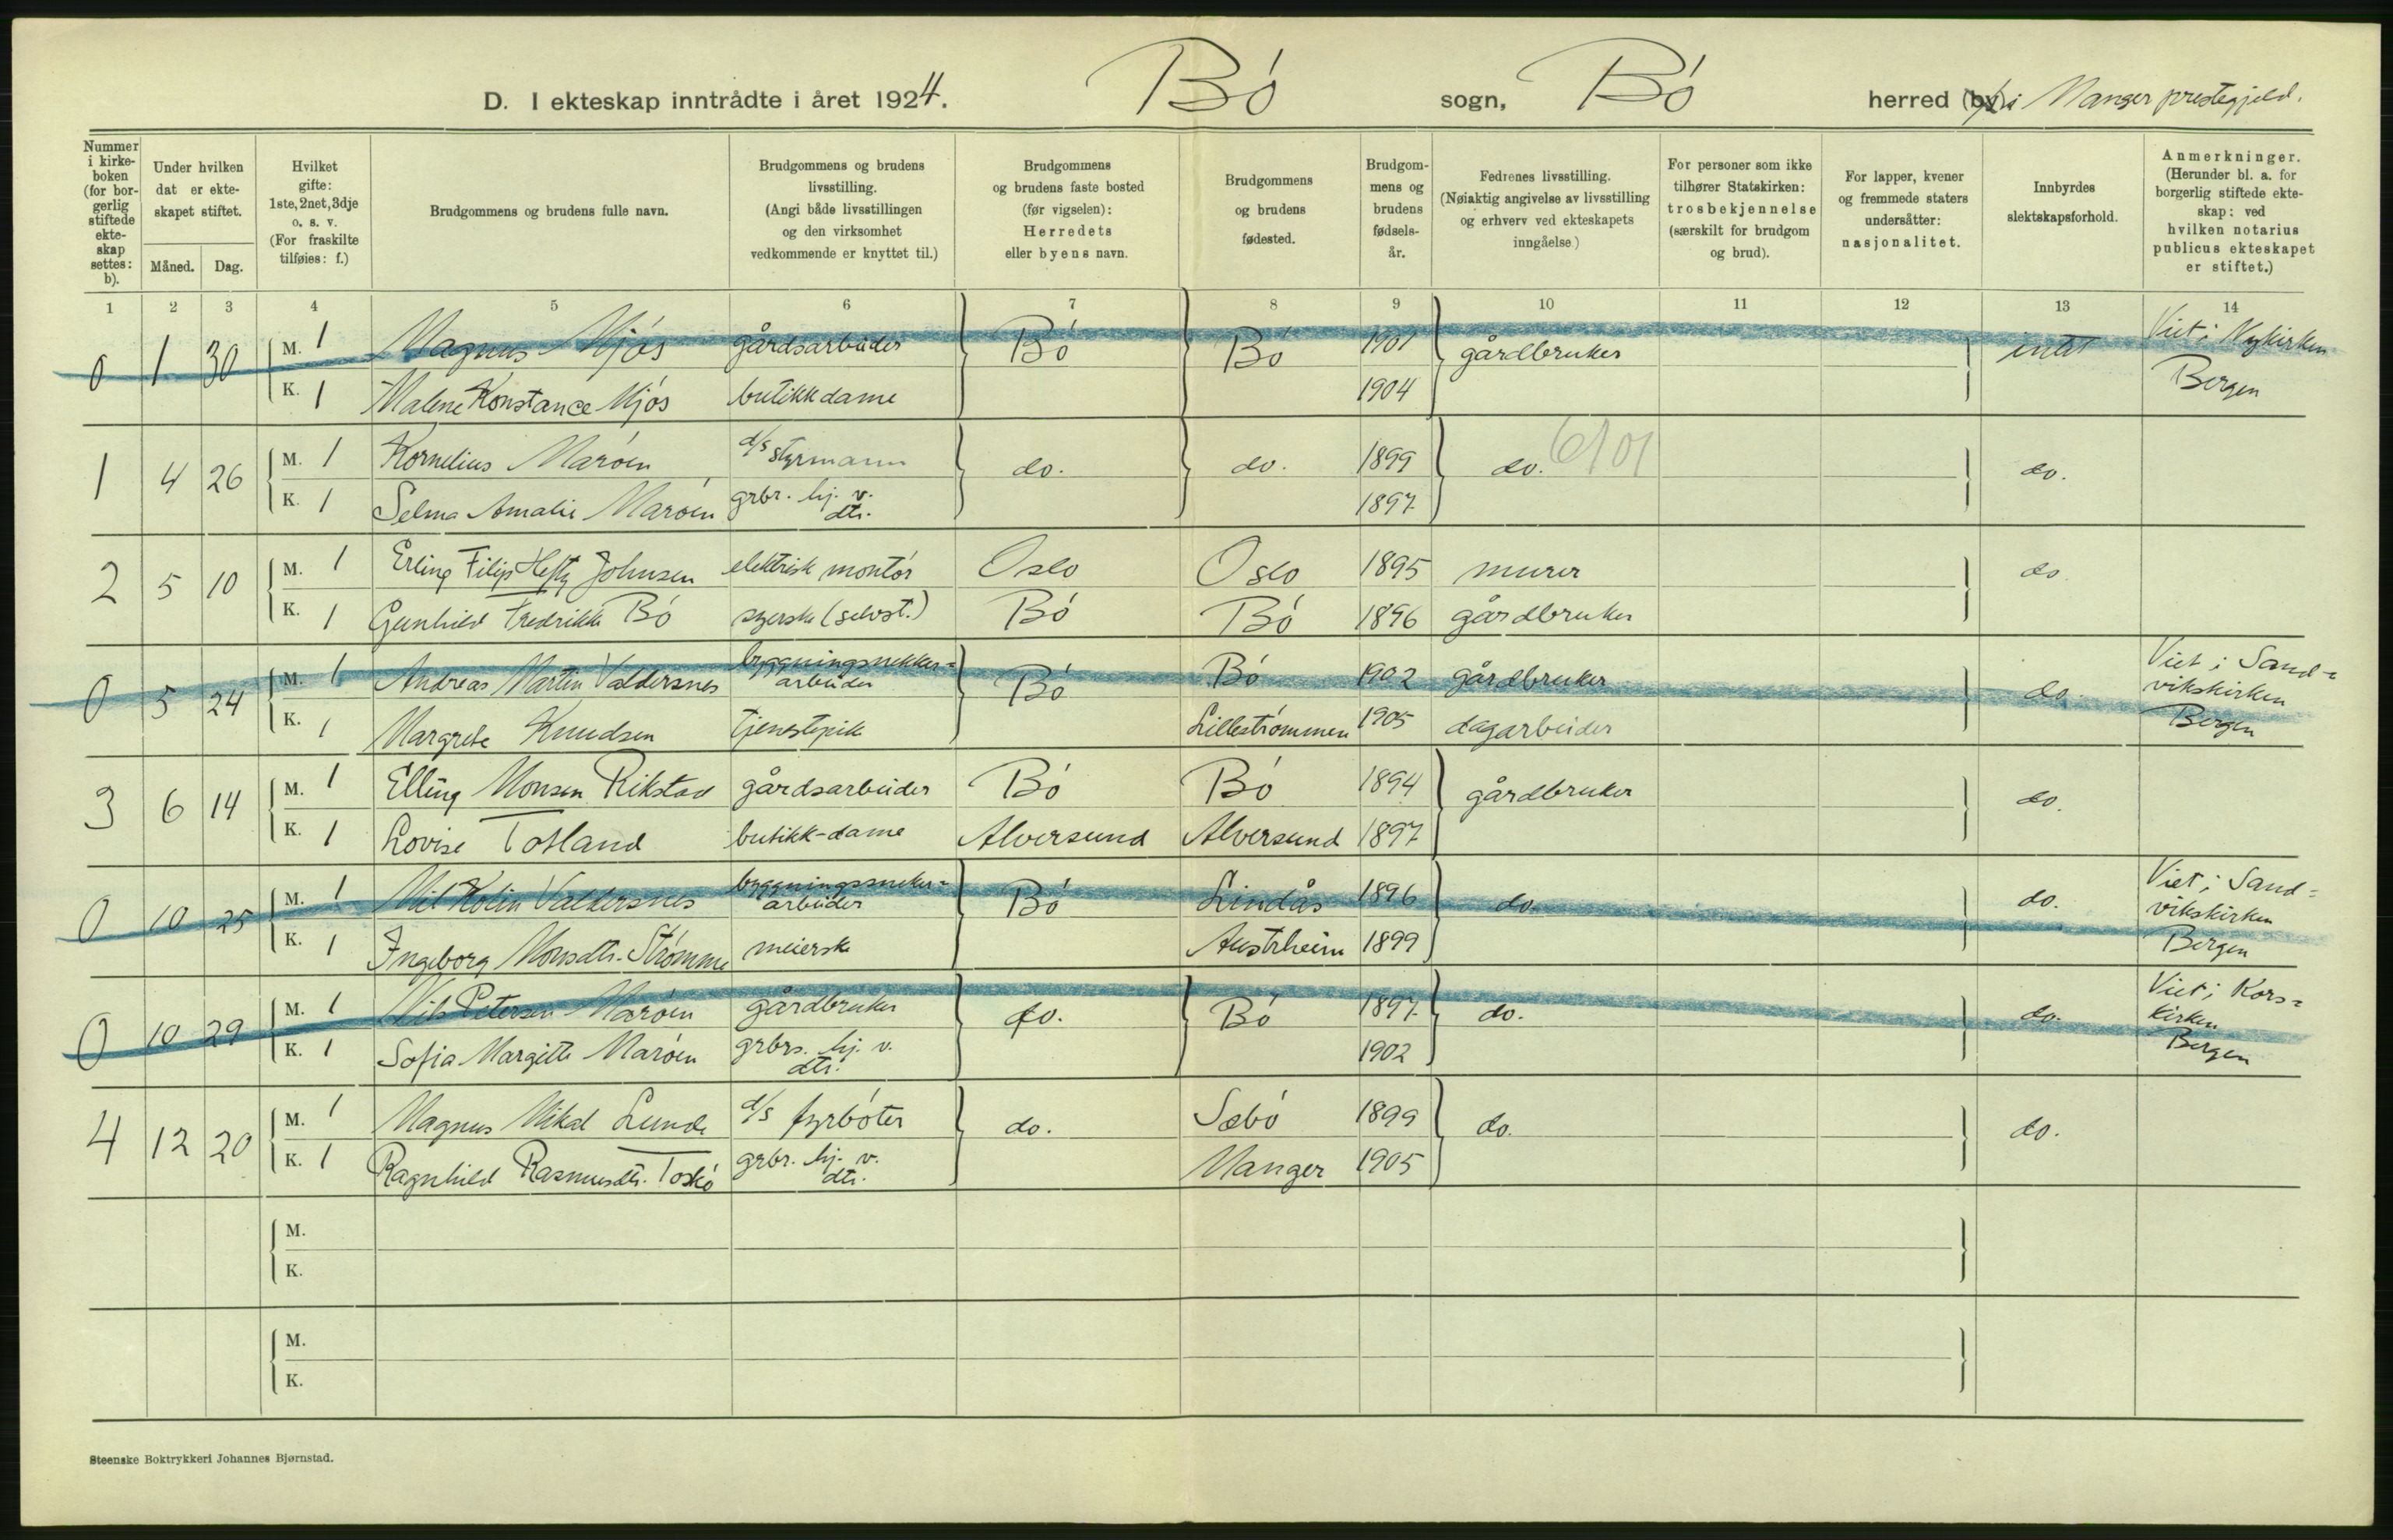 D. I ekteskap inntrådte i året 1924. Bó sogn, Bó herred (by) i Manger prestegjeld.
Nummer i kirke-boken (for bor-gerlig stiftede ekte-skap settes: b).
Under hvilken dat er ekte-skapet stiftet.
Måned. Dag.
Hvilket gifte: 1ste, 2net, 3dje o. s. v. (For fraskilte tilføies: f.)
Brudgommens og brudens fulle navn.
Brudgommens og brudens livsstilling. (Angi både livsstillingen og den virksomhet vedkommende er knyttet til.)
Brudgommens og brudens faste bosted (før vigselen): Herredets eller byens navn.
Brudgommens og brudens fødested.
Brudgom-mens og brudens fødsels-år.
Fedrenes livsstilling. (Nøiaktig angivelse av livsstilling og erhverv ved ekteskapets inngåelse.)
For personer som ikke tilhører Statskirken: trosbekjennelse (særskilt for brudgom og brud).
For lapper, kvener og fremmede staters undersåtter: nasjonalitet.
Innbyrdes slektskapsforhold.
Anmerkninger. (Herunder bl. a. for borgerlig stiftede ekte-skap: ved hvilken notarius publicus ekteskapet er stiftet.)
1 2 3 4 5 6 7 8 9 10 11 12 13 14
0 1 30 M. 1 Magnus Mjós gårdsarbeider Bó Bó 1901 gårdbruker intet Viet i Nykirken
K. 1 Malene Konstance Mjós butikkdame 1904 Bergen
1 4 26 M. 1 Kornelius Maróen d/s styrmann do. do. 1899 do. 6101 do.
K. 1 Selma Amalie Maróen grbr. hj. v. dtr. 1897
2 5 10 M. 1 Erling Filip Hefty Johnsen elektrisk montór Oslo Oslo 1895 murer do.
K. 1 Gunhild Fredrikke Bó syerske (selvst.) Bó Bó 1896 gårdbruker
0 5 24 M. 1 Andreas Martin Valdersnes bygningsnekker=arbeider Bó Bó 1902 gårdbruker do. Viet i Sand=
vikskirken
K. 1 Margrete Knudsen tjenestepike Lillestrómmen 1905 dagarbeider Bergen
3 6 14 M. 1 Elling Monsen Rikstad gårdsarbeider Bó Bó 1894 gårdbruker do.
K. 1 Lovise Totland butikk-dame Alversund Alversund 1897
0 10 25 M. 1 Nil Kolin Valdersnes bygningssneker=arbeider Bó Lindås 1896 do. do. Viet i Sand=
vikskirken
K. 1 Ingeborg Monsdtr. Strómme meierske Austrheim 1899 Bergen
0 10 29 M. 1 Nils Petersen Maróen gårdbruker do. Bó 1897 do. do. Viet i Kors=
kirken
K. 1 Sofia Margitte Maróen grbrs. hj. v. dtr. 1902 Bergen
4 12 20 M. 1 Magnus Mikal Lunde d/s fyrbóter do. Sæbó 1899 do. do.
K. 1 Ragnhild Rasmusdtr. Toskó grbr. hj. v. dtr. Manger 1905
M.
K.
M.
K.
Steenske Boktrykkeri Johannes Bjørnstad.